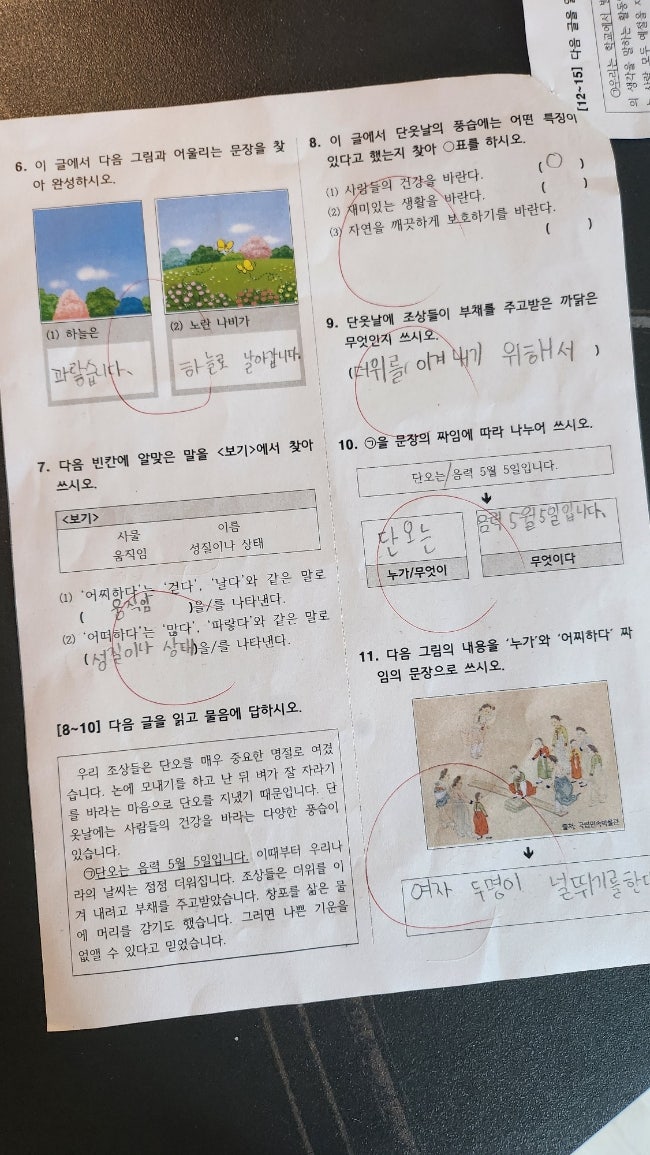 6. 이 글에서 다음 그림과 어울리는 문장을 찾
아 완성하시오.
(1) 하늘은
파랗습니다.
(2) 노란 나비가
하늘로 날아갑니다.
7. 다음 빈칸에 알맞은 말을 <보기>에서 찾아
쓰시오.
<보기>
사물 이름
움직임 성질이나 상태
(1) '어찌하다'는 '걷다', '날다'와 같은 말로
( 움직임 )을/를 나타낸다.
(2) '어떠하다'는 '많다', '파랗다'와 같은 말로
(성질이나 상태)을/를 나타낸다.
[8~10] 다음 글을 읽고 물음에 답하시오.
우리 조상들은 단오를 매우 중요한 명절로 여겼
습니다. 논에 모내기를 하고 난 뒤 벼가 잘 자라기
를 바라는 마음으로 단오를 지냈기 때문입니다. 단
옷날에는 사람들의 건강을 바라는 다양한 풍습이
있습니다.
㉠단오는 음력 5월 5일입니다. 이때부터 우리나
라의 날씨는 점점 더워집니다. 조상들은 더위를 이
겨 내려고 부채를 주고받았습니다. 창포를 삶은 물
에 머리를 감기도 했습니다. 그러면 나쁜 기운을
없앨 수 있다고 믿었습니다.
8. 이 글에서 단옷날의 풍습에는 어떤 특징이
있다고 했는지 찾아 ○표를 하시오.
(1) 사람들의 건강을 바란다. ( ○ )
(2) 재미있는 생활을 바란다. ( )
(3) 자연을 깨끗하게 보호하기를 바란다.
( )
9. 단옷날에 조상들이 부채를 주고받은 까닭은
무엇인지 쓰시오.
(더위를 이겨 내기 위해서 )
10. ㉠을 문장의 짜임에 따라 나누어 쓰시오.
단오는/음력 5월 5일입니다.
단오는
누가/무엇이
음력 5월 5일입니다.
무엇이다
11. 다음 그림의 내용을 '누가'와 '어찌하다' 짜
임의 문장으로 쓰시오.
출처: 국립민속박물관
여자 두명이 널뛰기를한다
[12~15] 다음 글을
㉠우리는 학교에서
의 생각을 말하는 활동